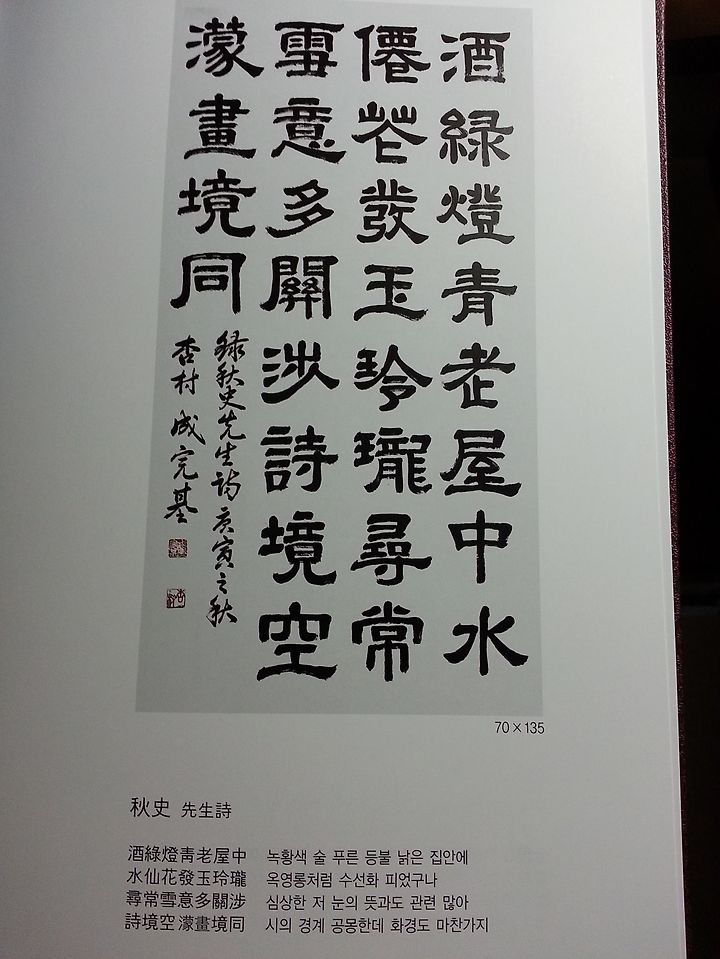 酒緑燈青老屋中水
僊花發玉玲瓏尋常
雪意多關涉詩境空
濛畫境同
録秋史先生詩 庚寅之秋
杏村 成完基
70×135
秋史 先生詩
酒綠燈靑老屋中 녹황색 술 푸른 등불 낡은 집안에
水仙花發玉玲瓏 옥영롱처럼 수선화 피었구나
尋常雪意多關涉 심상한 저 눈의 뜻과도 관련 많아
詩境空濛畫境同 시의 경계 공몽한데 화경도 마찬가지